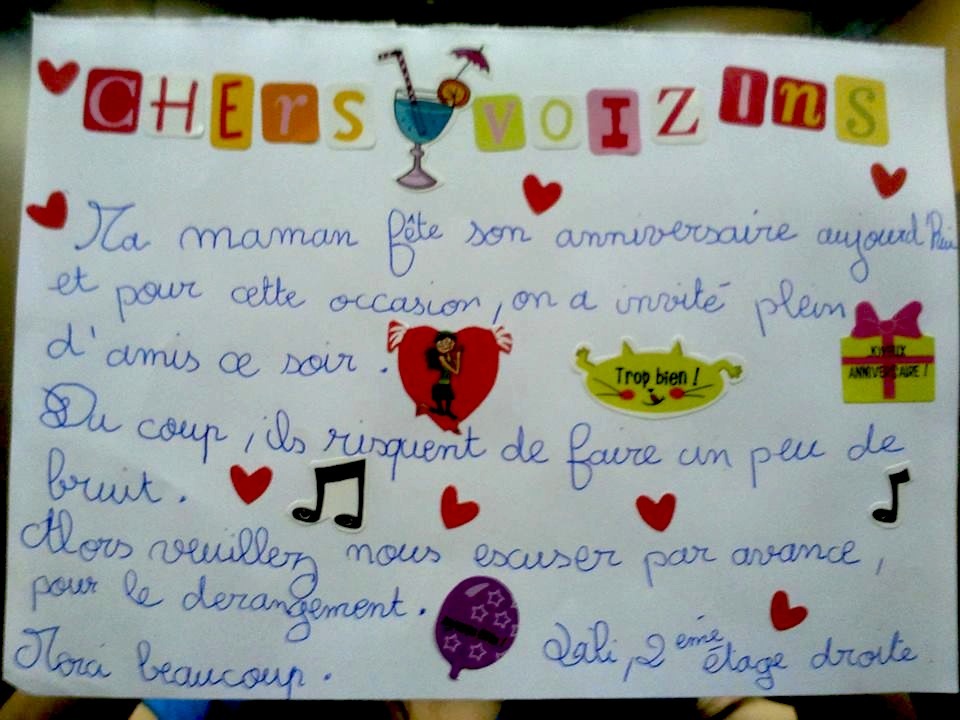 CHErS VOIZInS
Ma maman fête son anniversaire aujourd'hui
et pour cette occasion, on a invité plein
d'amis ce soir.
Trop bien !
ANNIVERSAIRE !
Du coup, ils risquent de faire un peu de
bruit.
Alors veuillez nous escuser par avance,
pour le derangement.
Merci beaucoup.
Lali, 2 eme étage droite